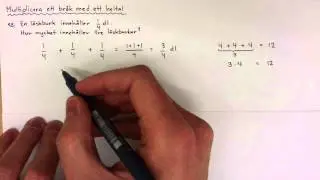 Multiplicera ett bråk med ett heltal
ex. En läskburk innehåller 1/4 dl.
Hur mycket innehåller tre läskburkar?
1/4 + 1/4 + 1/4 = (1+1+1)/4 = 3/4 dl
4 + 4 + 4 = 12
3
3 · 4 = 12